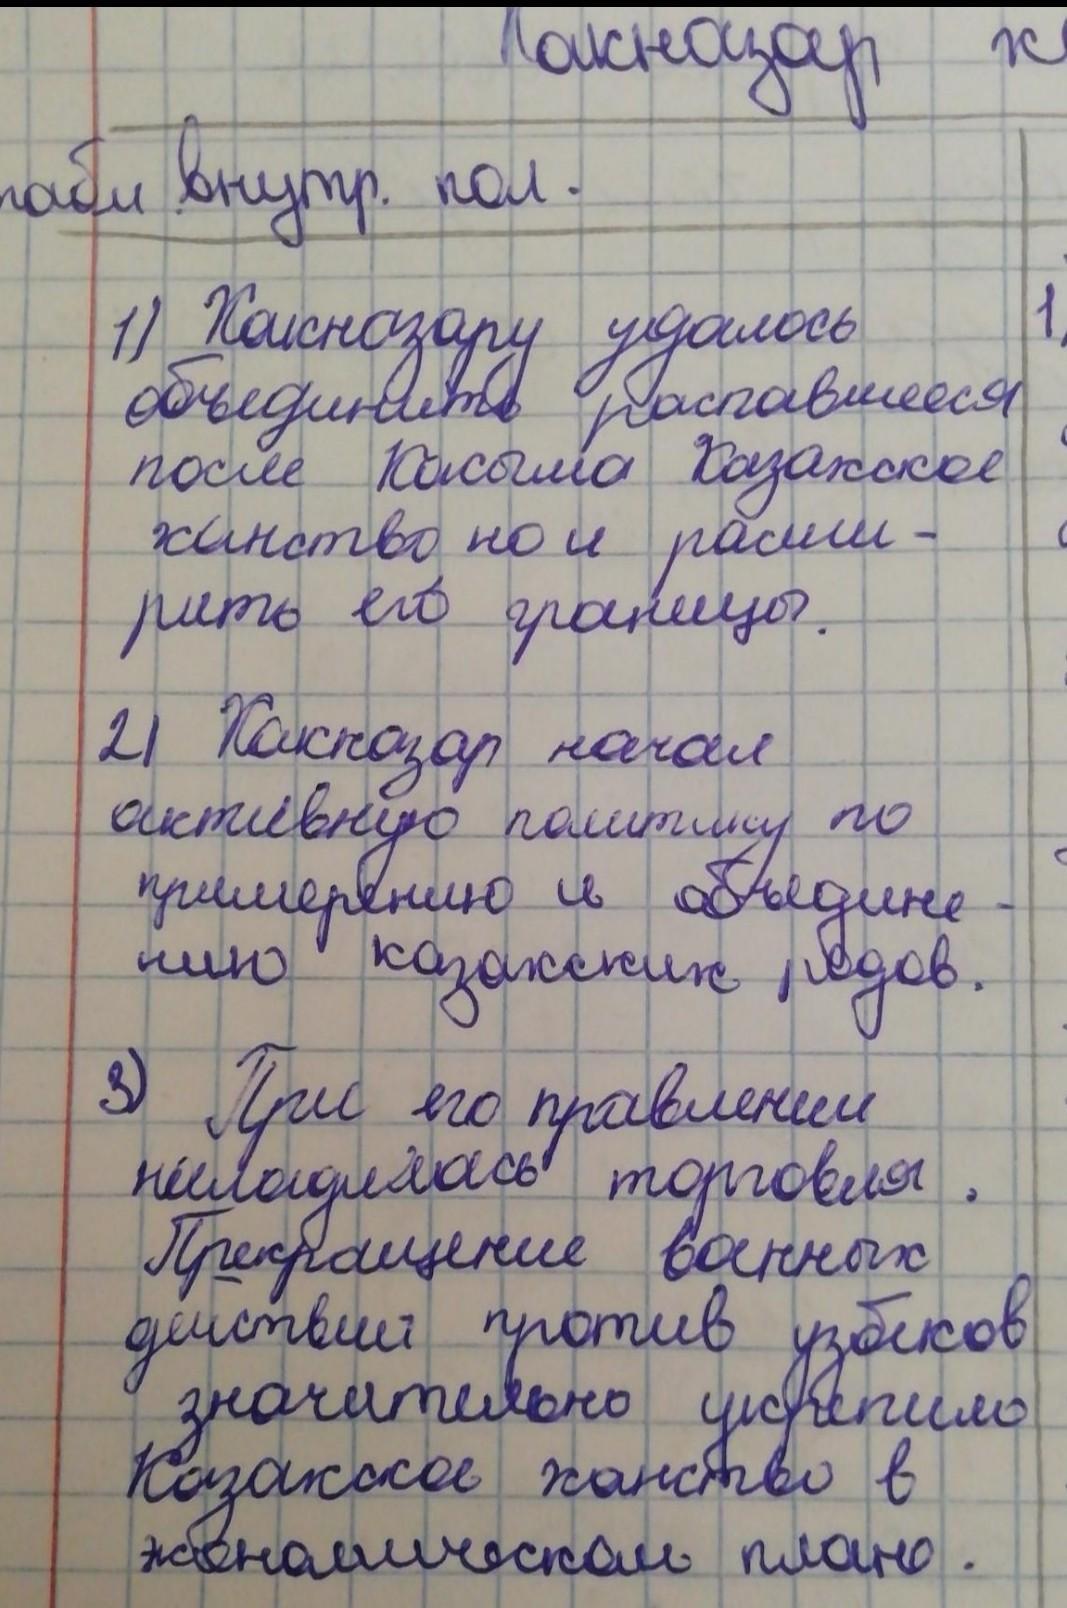 Хакназар
табл внутр. пол.
1) Хакназару удалось
1)
объединить распавшееся
после Касыма Казахское
ханство но и расши-
рить его границы.
2) Хакназар начал
активную политику по
примерению и объедине-
нию казахских родов.
3) При его правлении
наладилась торговля.
Прекращение военных
действий против узбеков
значительно укрепило
Казахское ханство в
экономическом плане.